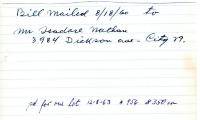 Bill Mailed 8/18/60 to
Mr Isadore Nathan
3984 Dickson ave - City 29.
pd for one Lot 12-8-63 # 956 $350.00